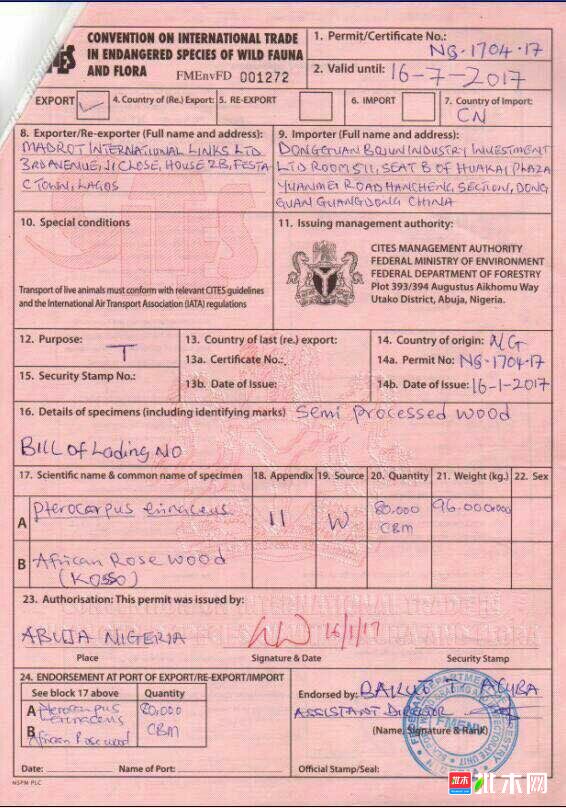 CITES
CONVENTION ON INTERNATIONAL TRADE
IN ENDANGERED SPECIES OF WILD FAUNA
AND FLORA
FMEnvFD 001272
1. Permit/Certificate No.:
NG.1704.17
2. Valid until: 16-7-2017
EXPORT
4. Country of (Re.) Export:
5. RE-EXPORT
6. IMPORT
7. Country of Import:
CN
8. Exporter/Re-exporter (Full name and address):
MADROT INTERNATIONAL LINKS LTD
3RD AVENUE, JI CLOSE, HOUSE 2B, FESTA
C TOWN, LAGOS
9. Importer (Full name and address):
DONGGUAN BOJUN INDUSTRY INVESTMENT
LTD ROOM 511, SEAT B OF HUAKAI PLAZA
YUANMEI ROAD NANCHENG, SECTION, DONG
GUAN GUANGDONG CHINA
10. Special conditions
Transport of live animals must conform with relevant CITES guidelines
and the International Air Transport Association (IATA) regulations
11. Issuing management authority:
CITES MANAGEMENT AUTHORITY
FEDERAL MINISTRY OF ENVIRONMENT
FEDERAL DEPARTMENT OF FORESTRY
Plot 393/394 Augustus Aikhomu Way
Utako District, Abuja, Nigeria.
12. Purpose:
T
13. Country of last (re.) export:
13a. Certificate No.:
13b. Date of Issue:
14. Country of origin: NG
14a. Permit No: NG.1704.17
14b. Date of Issue: 16-1-2017
15. Security Stamp No.:
16. Details of specimens (including identifying marks) Semi processed wood
Bill of Lading NO
17. Scientific name & common name of specimen
18. Appendix
19. Source
20. Quantity
21. Weight (kg.)
22. Sex
A
Pterocarpus erinaceus
11
W
80.000
CBM
96.000000
B
African Rose wood
(KOSSO)
23. Authorisation: This permit was issued by:
ABUJA NIGERIA
16/1/17
Place
Signature & Date
Security Stamp
24. ENDORSEMENT AT PORT OF EXPORT/RE-EXPORT/IMPORT
See block 17 above
Quantity
A Pterocarpus
erinaceus
80.000
CBM
B African Rose wood
Endorsed by:
ASSISTANT Director
(Name, Signature & Rank)
Date:
Name of Port:
Official Stamp/Seal:
FMENV
NSPM PLC
批木网